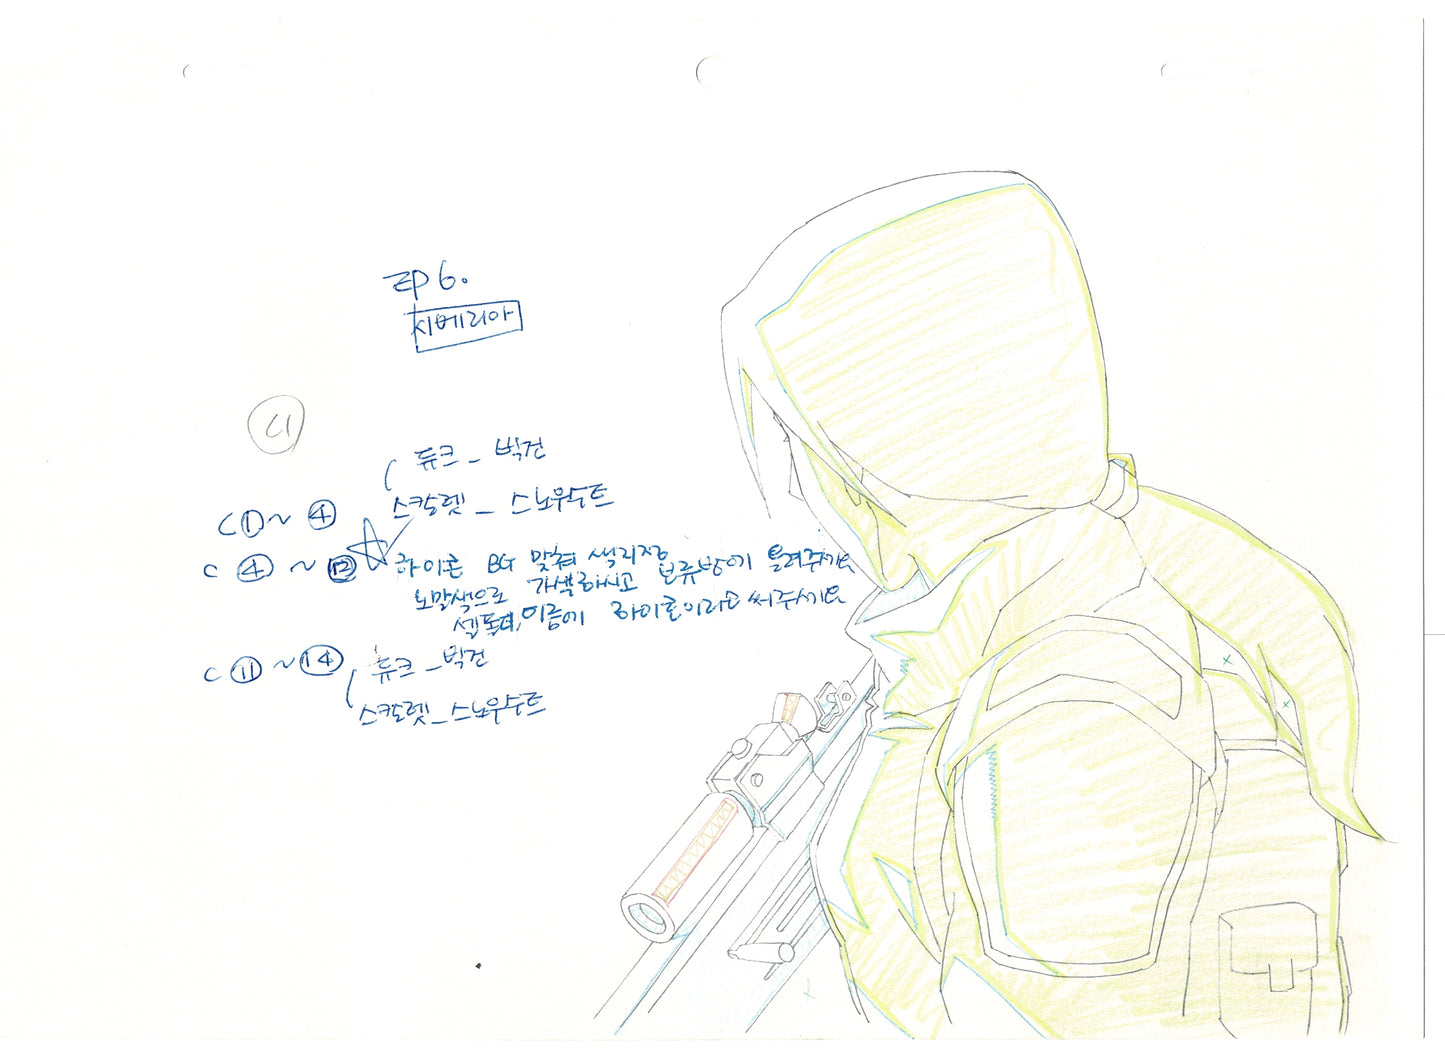 EP 6.
시베리아
C1
듀크 _ 빅건
C ① ~ ④ 스칼렛 _ 스노우수트
C ④ ~ ⑫ ☆ 하이콘 BG 맞춰 색지정 보류방에 돌려주세요
노말색으로 가색하시고
셀톡터, 이름에 하이콘이라고 써주세요
C ⑪ ~ ⑭ 듀크 _ 빅건
스칼렛 _ 스노우수트